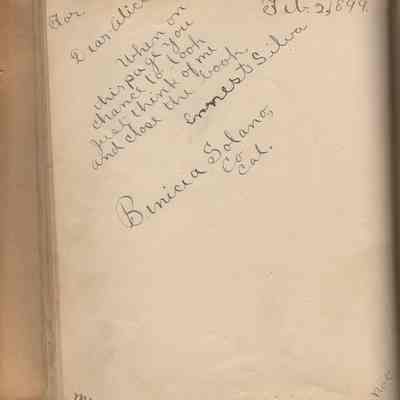 For
Feb 2, 1899.
Dear Alice
When on
this page you
chance to look
just think of me
and close the book.
Ernest Silva
Binicia Solano,
Co
Cal.